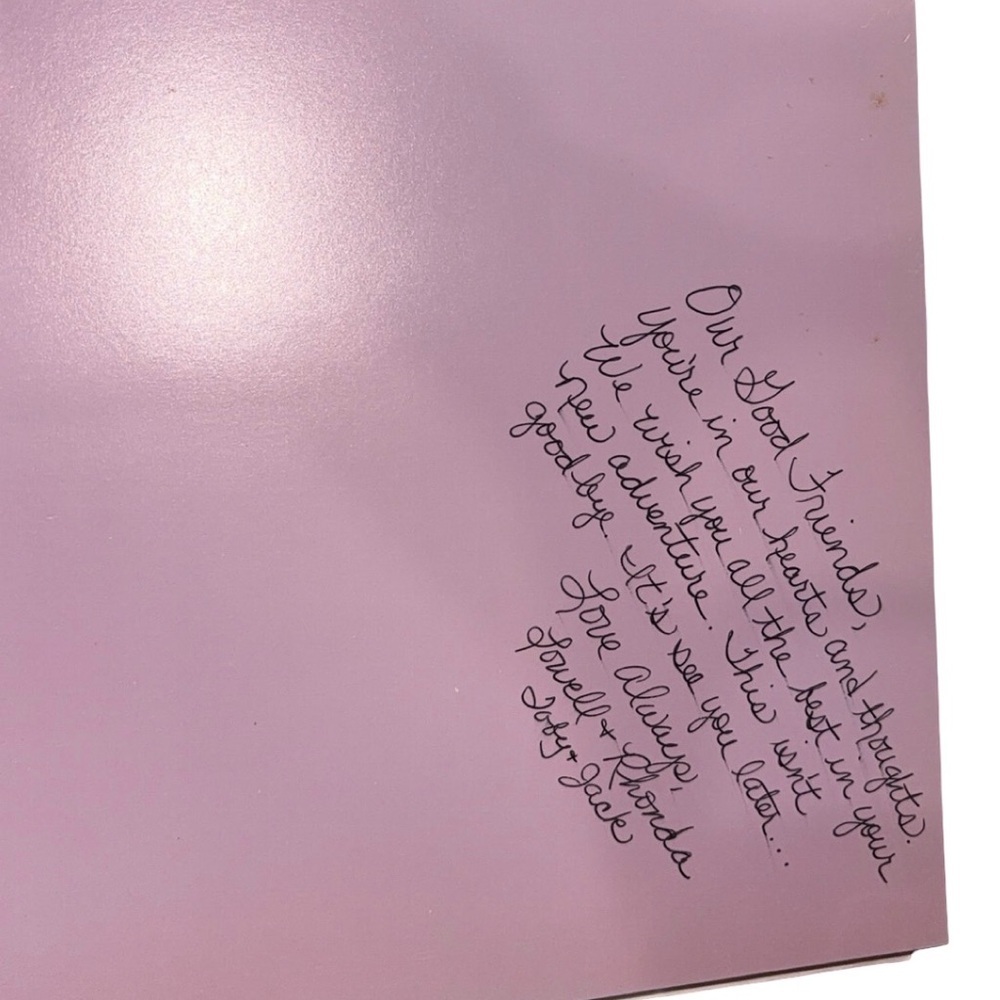 Our Good Friends,
You're in our hearts and thoughts.
We wish you all the best in your
new adventure. This isn't
goodbye. It's see you later...
Love Always,
Lowell + Rhonda
Toby + Jack